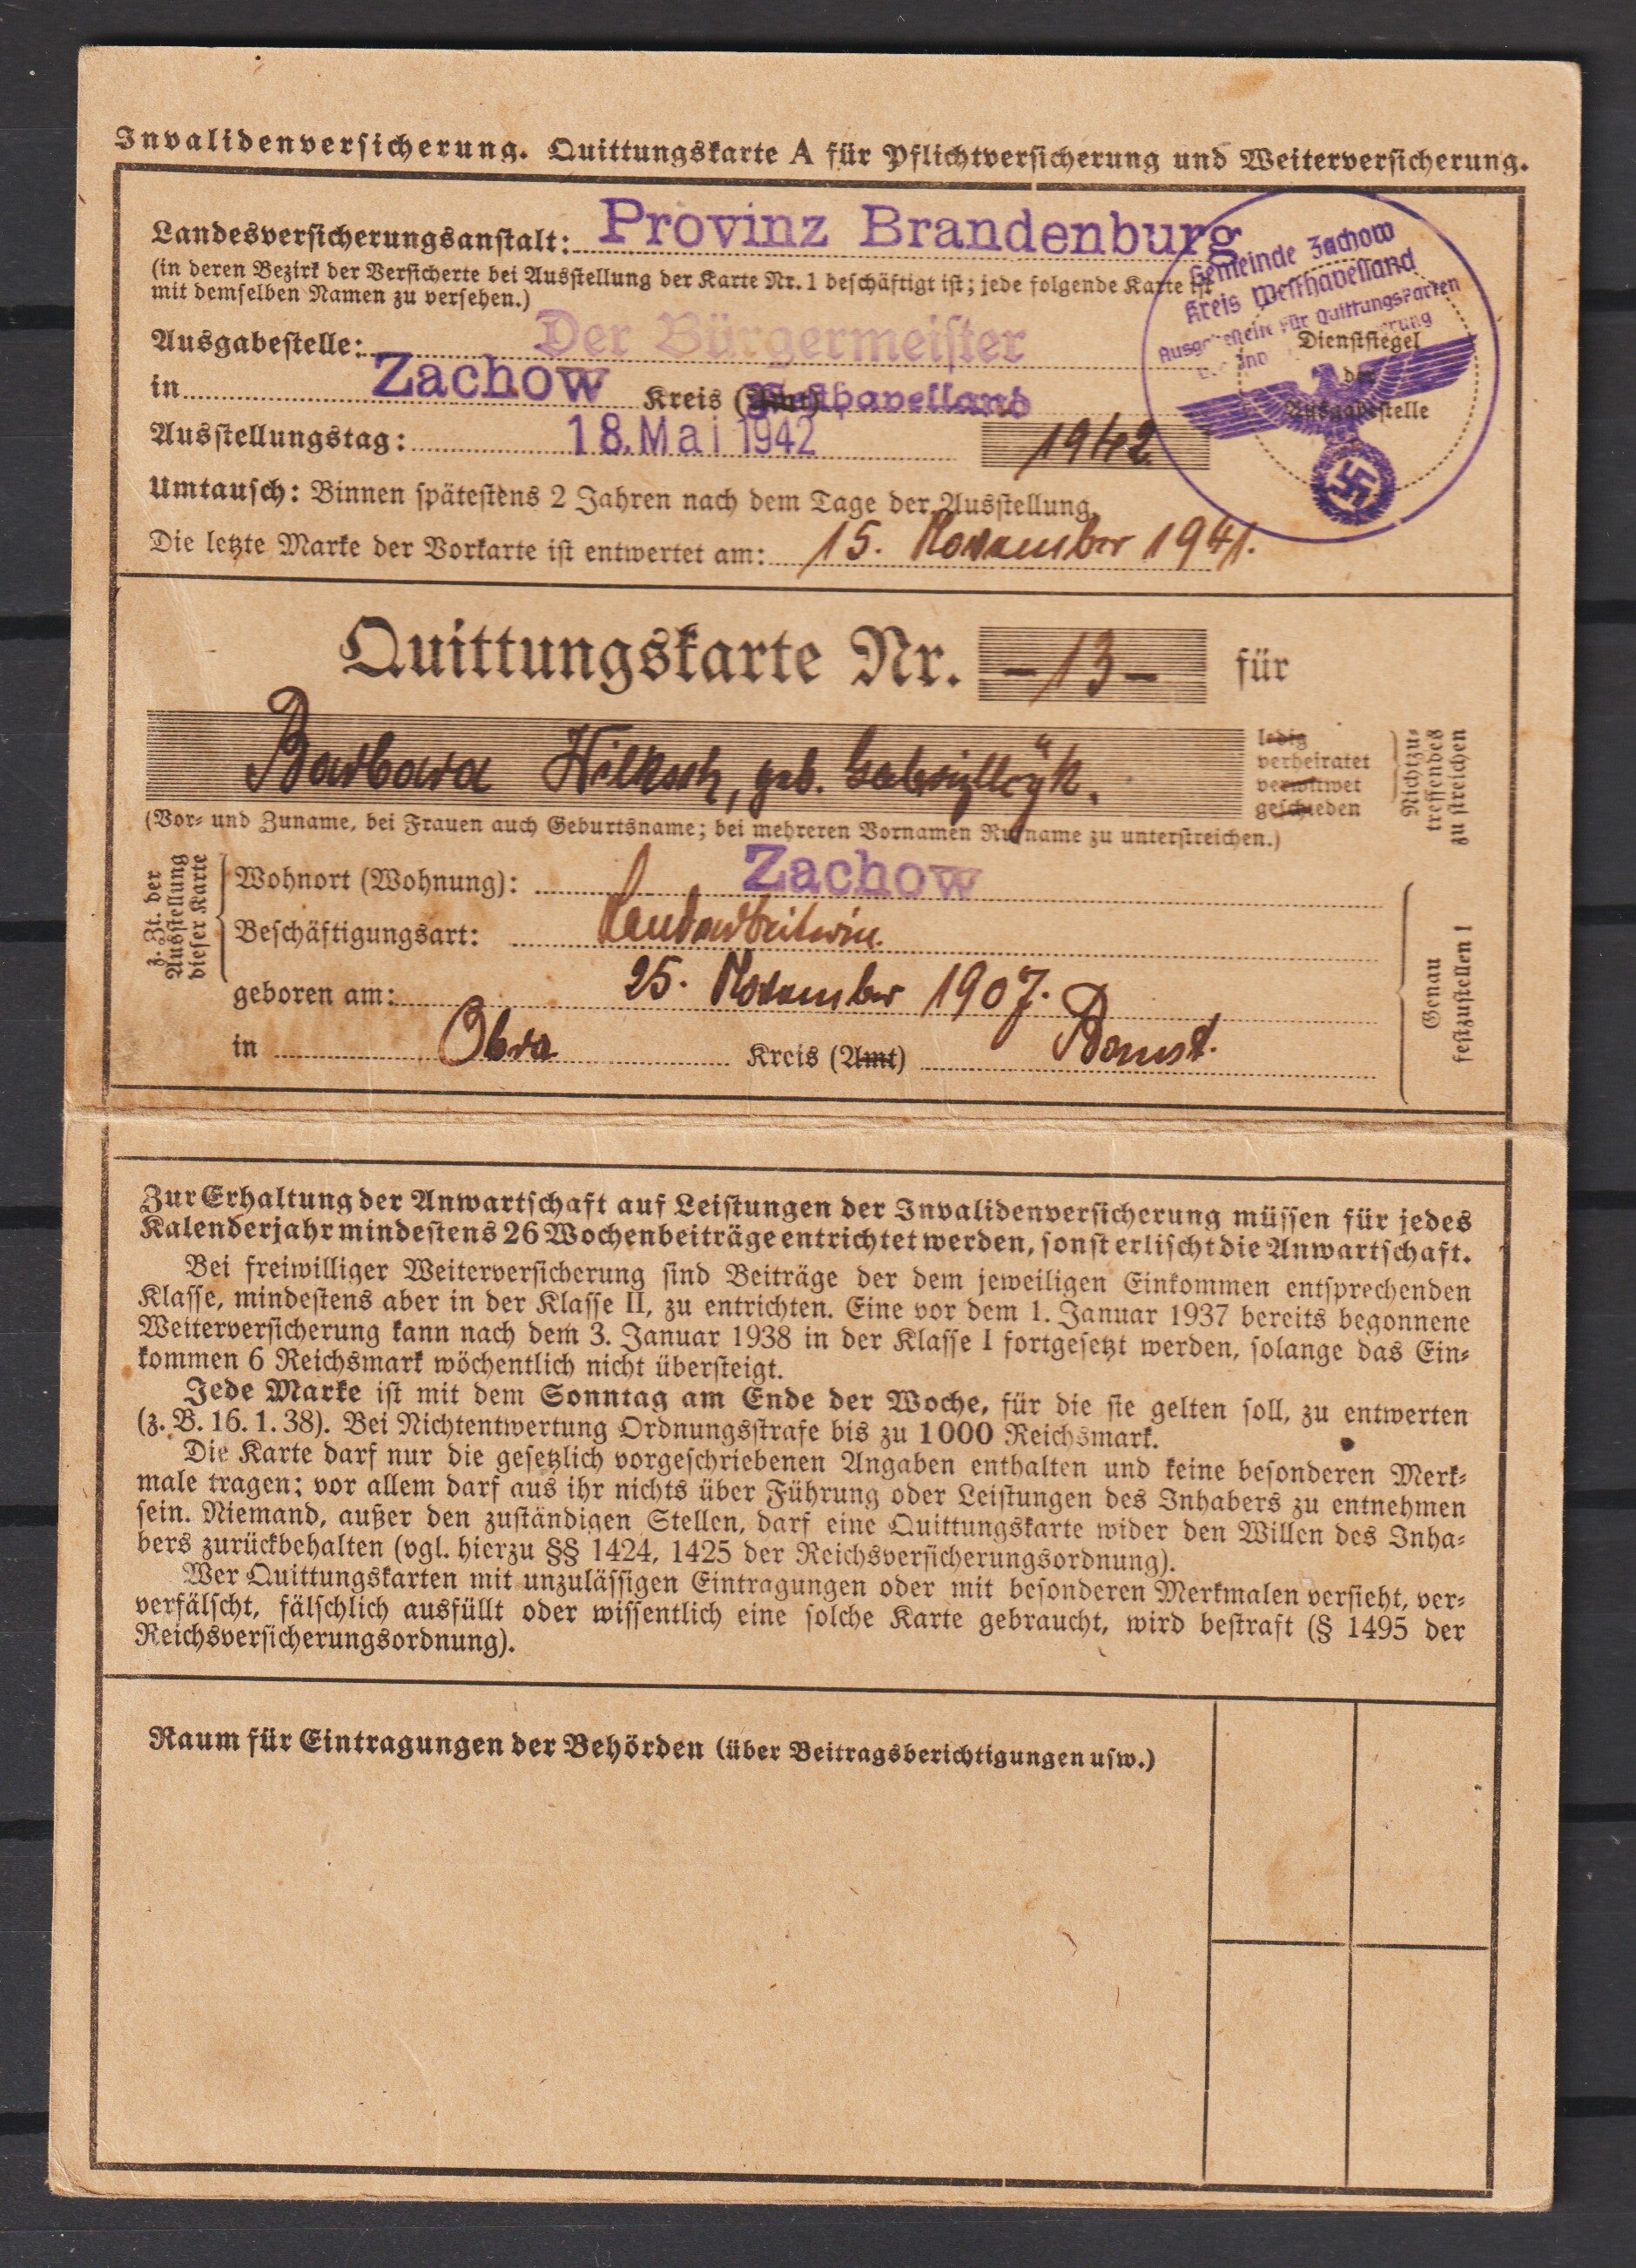 Invalidenversicherung. Quittungskarte A für Pflichtversicherung und Weiterversicherung.
Landesversicherungsanstalt: Provinz Brandenburg
(in deren Bezirk der Versicherte bei Ausstellung der Karte Nr. 1 beschäftigt ist; jede folgende Karte ist
mit demselben Namen zu versehen.)
Gemeinde Zachow
Kreis Westhavelland
Ausgabestelle für Quittungskarten
Dienstsiegel
der
Ausgabestelle
Ausgabestelle: Der Bürgermeister
in Zachow Kreis (Amt) Westhavelland
Ausstellungstag: 18. Mai 1942 1942
Umtausch: Binnen spätestens 2 Jahren nach dem Tage der Ausstellung.
Die letzte Marke der Vorkarte ist entwertet am: 15. November 1941.
Quittungskarte Nr. -13- für
Barbara geb.
ledig
verheiratet
verwitwet
geschieden
Nichtzu-
treffendes
zu streichen
(Vor- und Zuname, bei Frauen auch Geburtsname; bei mehreren Vornamen Rufname zu unterstreichen.)
z. Zt. der
Ausstellung
dieser Karte
Wohnort (Wohnung): Zachow
Beschäftigungsart: Landarbeiterin.
geboren am: 25. November 1907.
in Obra Kreis (Amt) Bomst.
Genau
festzustellen!
Zur Erhaltung der Anwartschaft auf Leistungen der Invalidenversicherung müssen für jedes
Kalenderjahr mindestens 26 Wochenbeiträge entrichtet werden, sonst erlischt die Anwartschaft.
Bei freiwilliger Weiterversicherung sind Beiträge der dem jeweiligen Einkommen entsprechenden
Klasse, mindestens aber in der Klasse II, zu entrichten. Eine vor dem 1. Januar 1937 bereits begonnene
Weiterversicherung kann nach dem 3. Januar 1938 in der Klasse I fortgesetzt werden, solange das Ein-
kommen 6 Reichsmark wöchentlich nicht übersteigt.
Jede Marke ist mit dem Sonntag am Ende der Woche, für die sie gelten soll, zu entwerten
(z. B. 16. 1. 38). Bei Nichtentwertung Ordnungsstrafe bis zu 1000 Reichsmark.
Die Karte darf nur die gesetzlich vorgeschriebenen Angaben enthalten und keine besonderen Merk-
male tragen; vor allem darf aus ihr nichts über Führung oder Leistungen des Inhabers zu entnehmen
sein. Niemand, außer den zuständigen Stellen, darf eine Quittungskarte wider den Willen des Inha-
bers zurückbehalten (vgl. hierzu §§ 1424, 1425 der Reichsversicherungsordnung).
Wer Quittungskarten mit unzulässigen Eintragungen oder mit besonderen Merkmalen versieht, ver-
verfälscht, fälschlich ausfüllt oder wissentlich eine solche Karte gebraucht, wird bestraft (§ 1495 der
Reichsversicherungsordnung).
Raum für Eintragungen der Behörden (über Beitragsberichtigungen usw.)